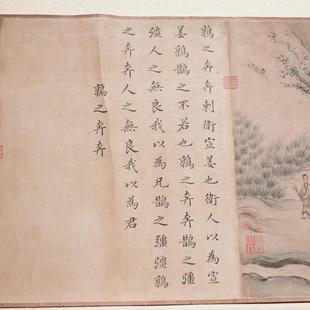 鶉之奔奔刺衛宣姜也衛人以為宣
姜鶉鵲之不若也鶉之奔奔鵲之彊
彊人之無良我以為兄鵲之彊彊鶉
之奔奔人之無良我以為君
鶉之奔奔